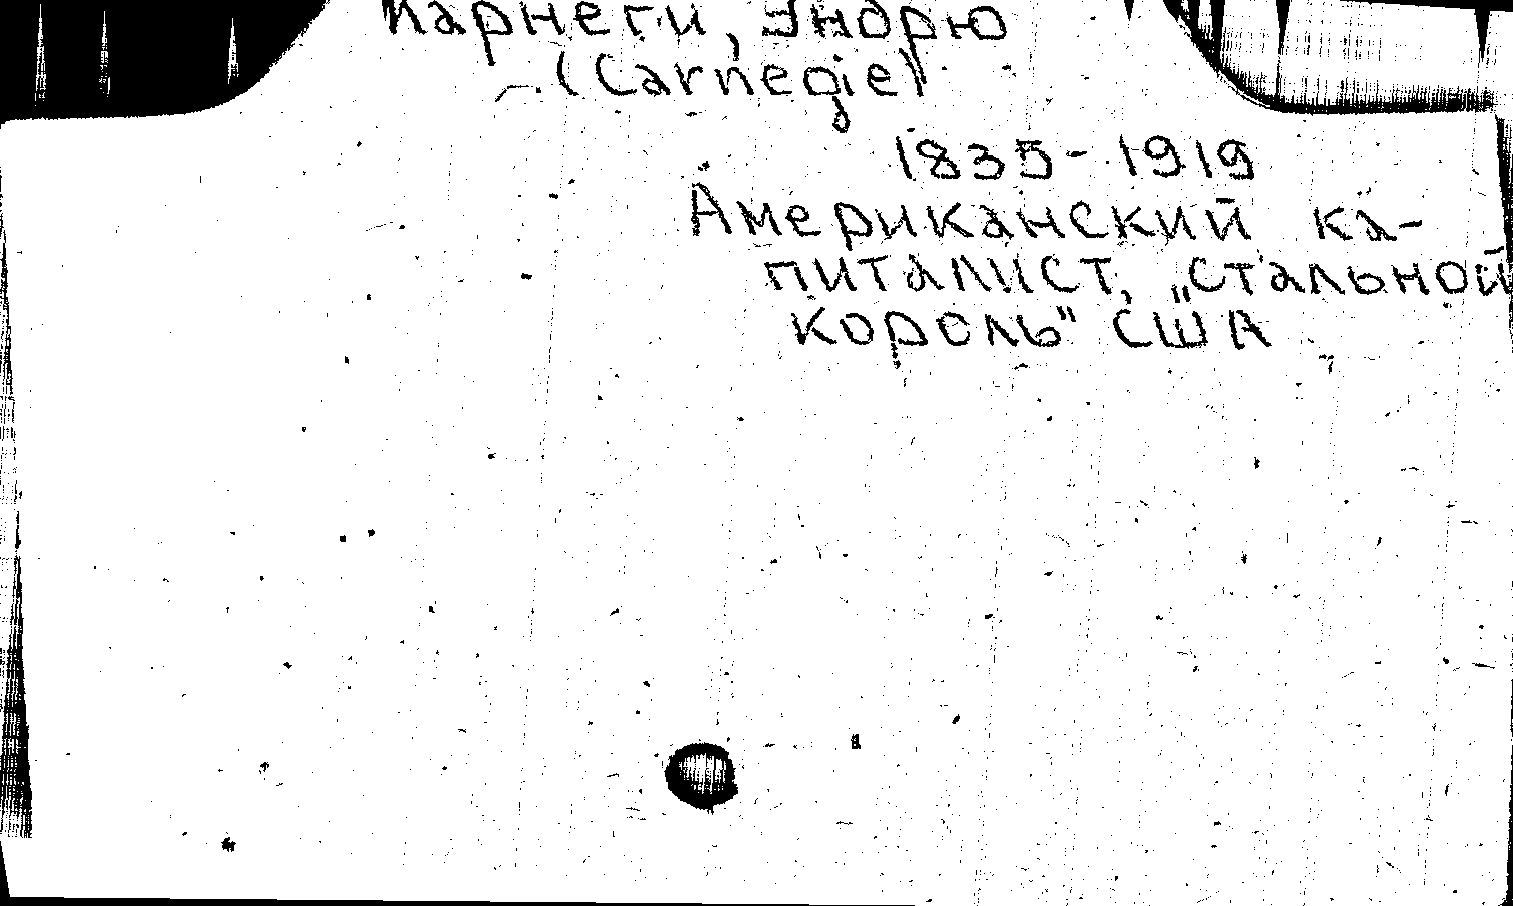 Карнеги, Эндрю
(Carnegie)
1835-1919
Американский ка-
питалист, „стальной
король" США